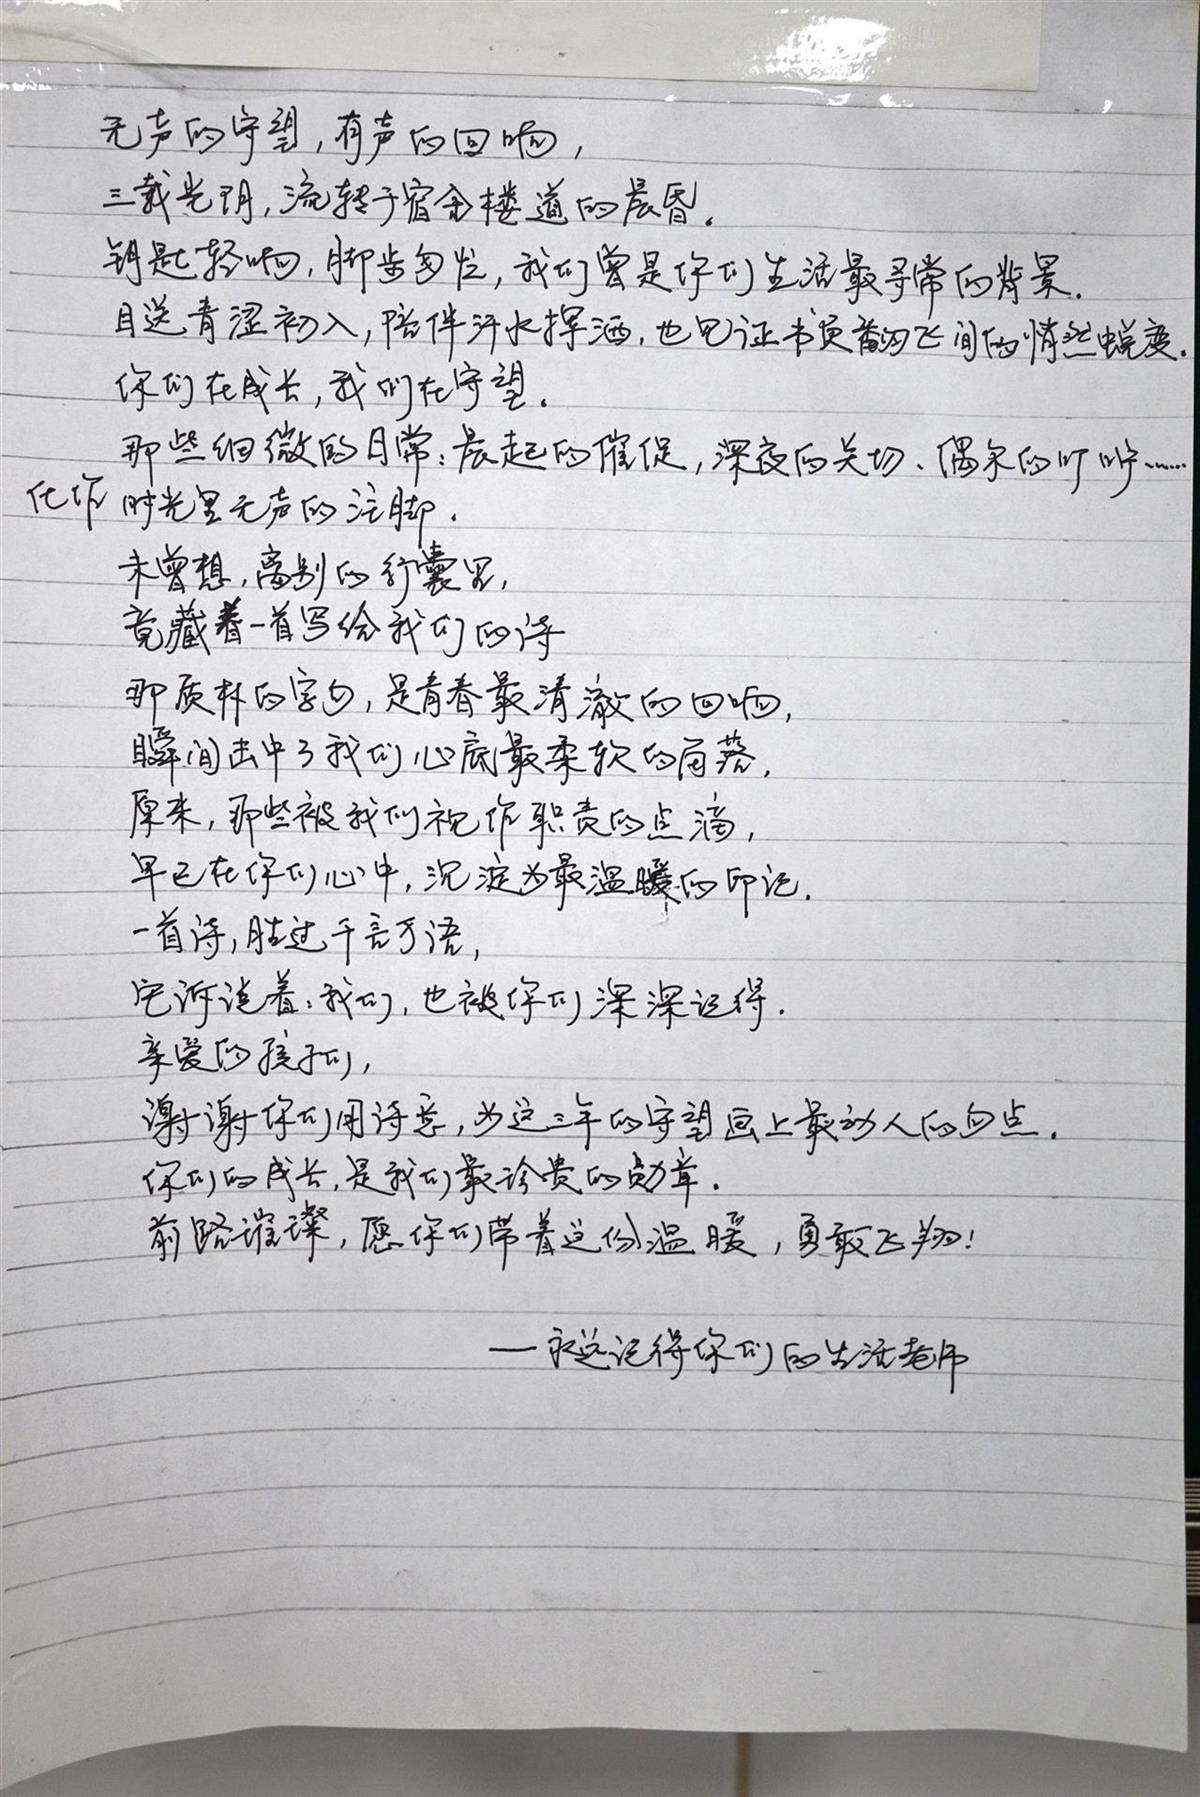 无声的守望,有声的回响,
三载光玥,流转于宿舍楼道的晨昏.
钥匙轻响,脚步匆忙,我们曾是你们生活最寻常的背景.
目送青涩初入,陪伴汗水挥洒,也见证书页翻飞间的悄然蜕变.
你们在成长,我们在守望.
那些细微的日常:晨起的催促,深夜的关切、偶尔的叮咛……
化作时光里无声的注脚.
未曾想,离别的行囊里,
竟藏着一首写给我们的诗
那质朴的字句,是青春最清澈的回响,
瞬间击中了我们心底最柔软的角落,
原来,那些被我们视作职责的点滴,
早已在你们心中,沉淀为最温暖的印记.
一首诗,胜过千言万语,
它诉说着:我们,也被你们深深记得.
亲爱的孩子们,
谢谢你们用诗意,为这三年的守望画上最动人的句点.
你们的成长,是我们最珍贵的勋章.
前路璀璨,愿你们带着这份温暖,勇敢飞翔!
——永远记得你们的生活老师